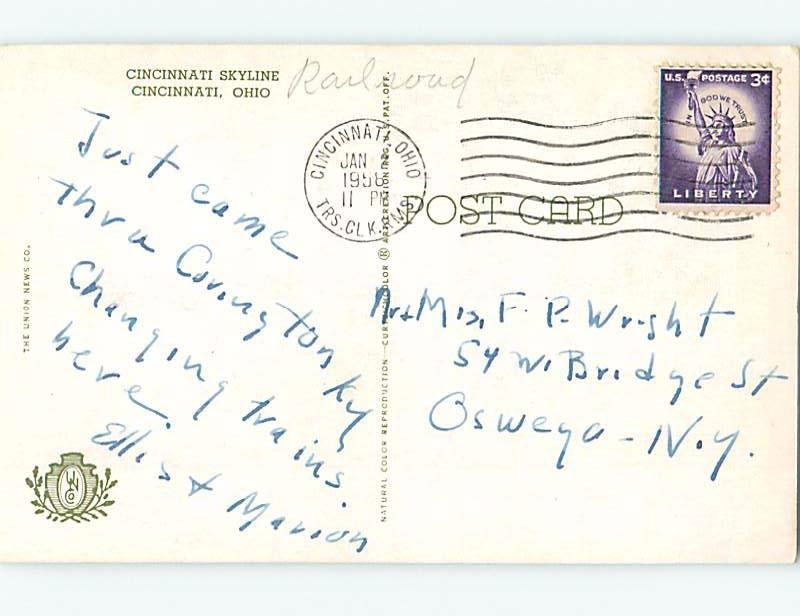 CINCINNATI SKYLINE
CINCINNATI, OHIO
Railroad
Just came
thru Covington Ky
Changing trains.
here.
Ellis & Marion
THE UNION NEWS CO.
UN
Co
CINCINNATI, OHIO
JAN
1958
11 PM
TRS. CLK.
U.S. POSTAGE 3¢
IN GOD WE TRUST
LIBERTY
POST CARD
Mr & Mrs, F. P. Wright
54 W. Bridge St
Oswego - N.Y.
NATURAL COLOR REPRODUCTION